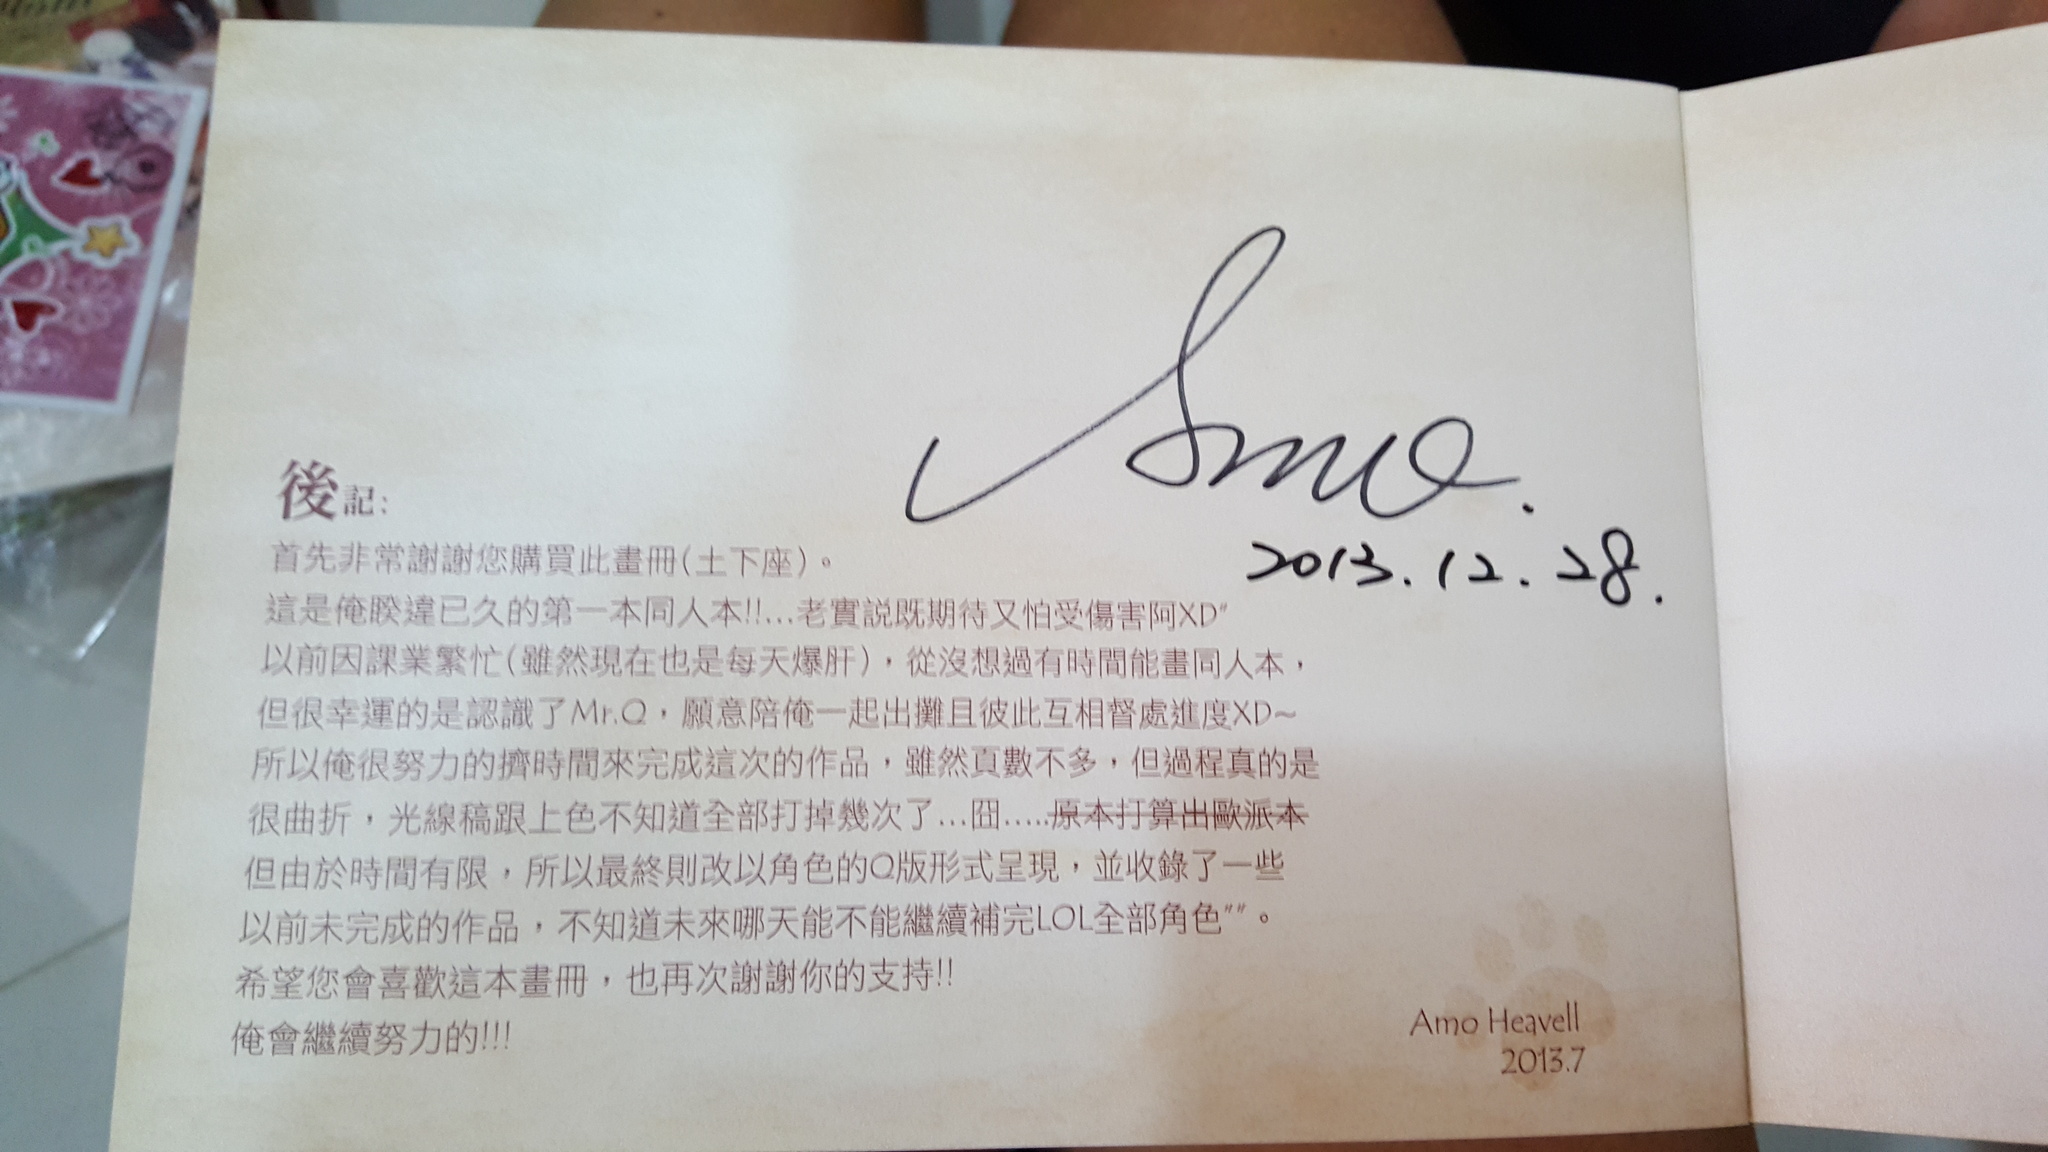 Amo.
2013.12.28.
後記:
首先非常謝謝您購買此畫冊(土下座)。
這是俺睽違已久的第一本同人本!!...老實說既期待又怕受傷害阿XD"
以前因課業繁忙(雖然現在也是每天爆肝)，從沒想過有時間能畫同人本，
但很幸運的是認識了Mr.Q，願意陪俺一起出攤且彼此互相督處進度XD~
所以俺很努力的擠時間來完成這次的作品，雖然頁數不多，但過程真的是
很曲折，光線稿跟上色不知道全部打掉幾次了...囧.....原本打算出歐派本
但由於時間有限，所以最終則改以角色的Q版形式呈現，並收錄了一些
以前未完成的作品，不知道未來哪天能不能繼續補完LOL全部角色""。
希望您會喜歡這本畫冊，也再次謝謝你的支持!!
俺會繼續努力的!!!
Amo Heavell
2013.7